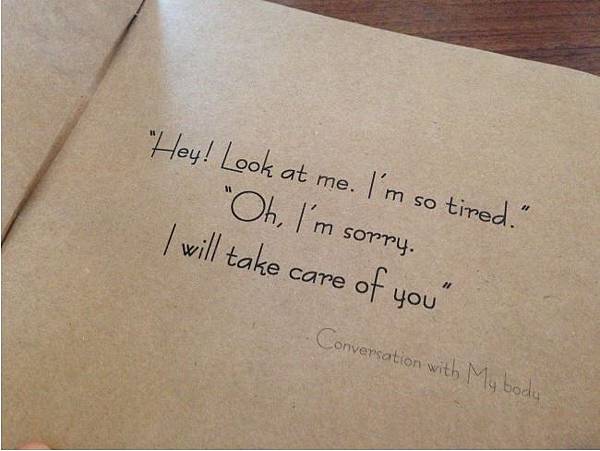 "Hey! Look at me. I'm so tired."
"Oh, I'm sorry.
I will take care of you"
Conversation with My body